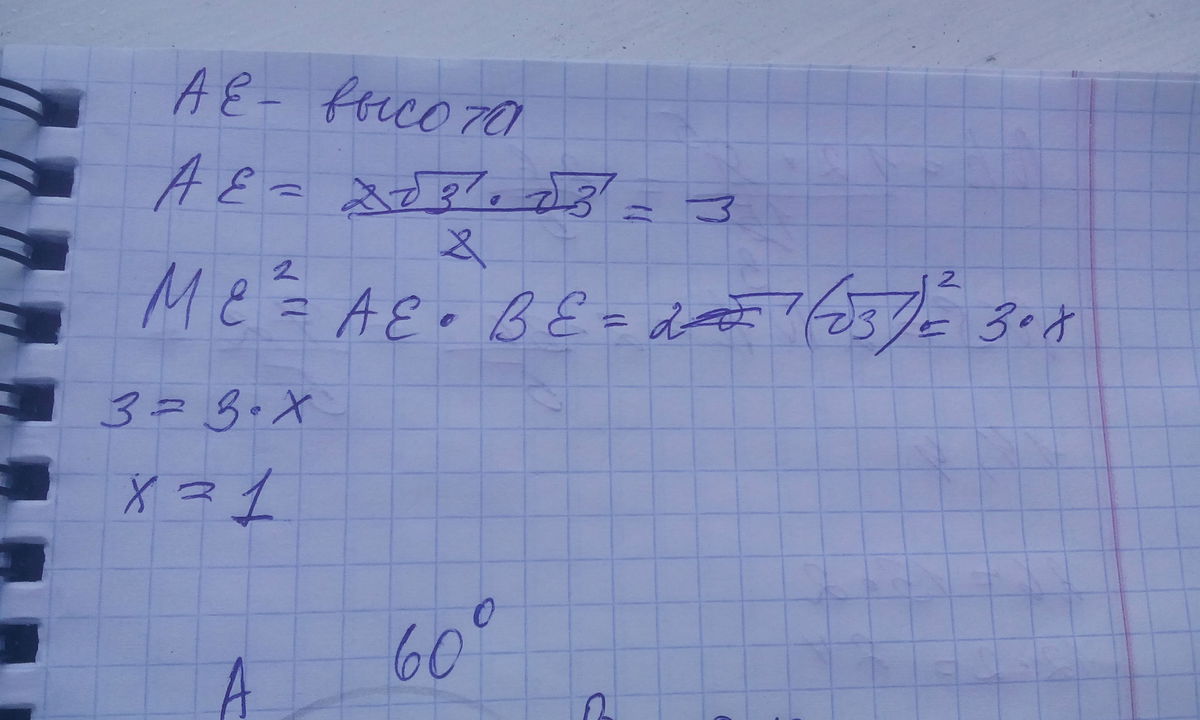 AE - высота
AE = 2√3 · √3 / 2 = 3
ME² = AE · BE = 2√ (√3)² = 3 · x
3 = 3 · x
x = 1
60°
A